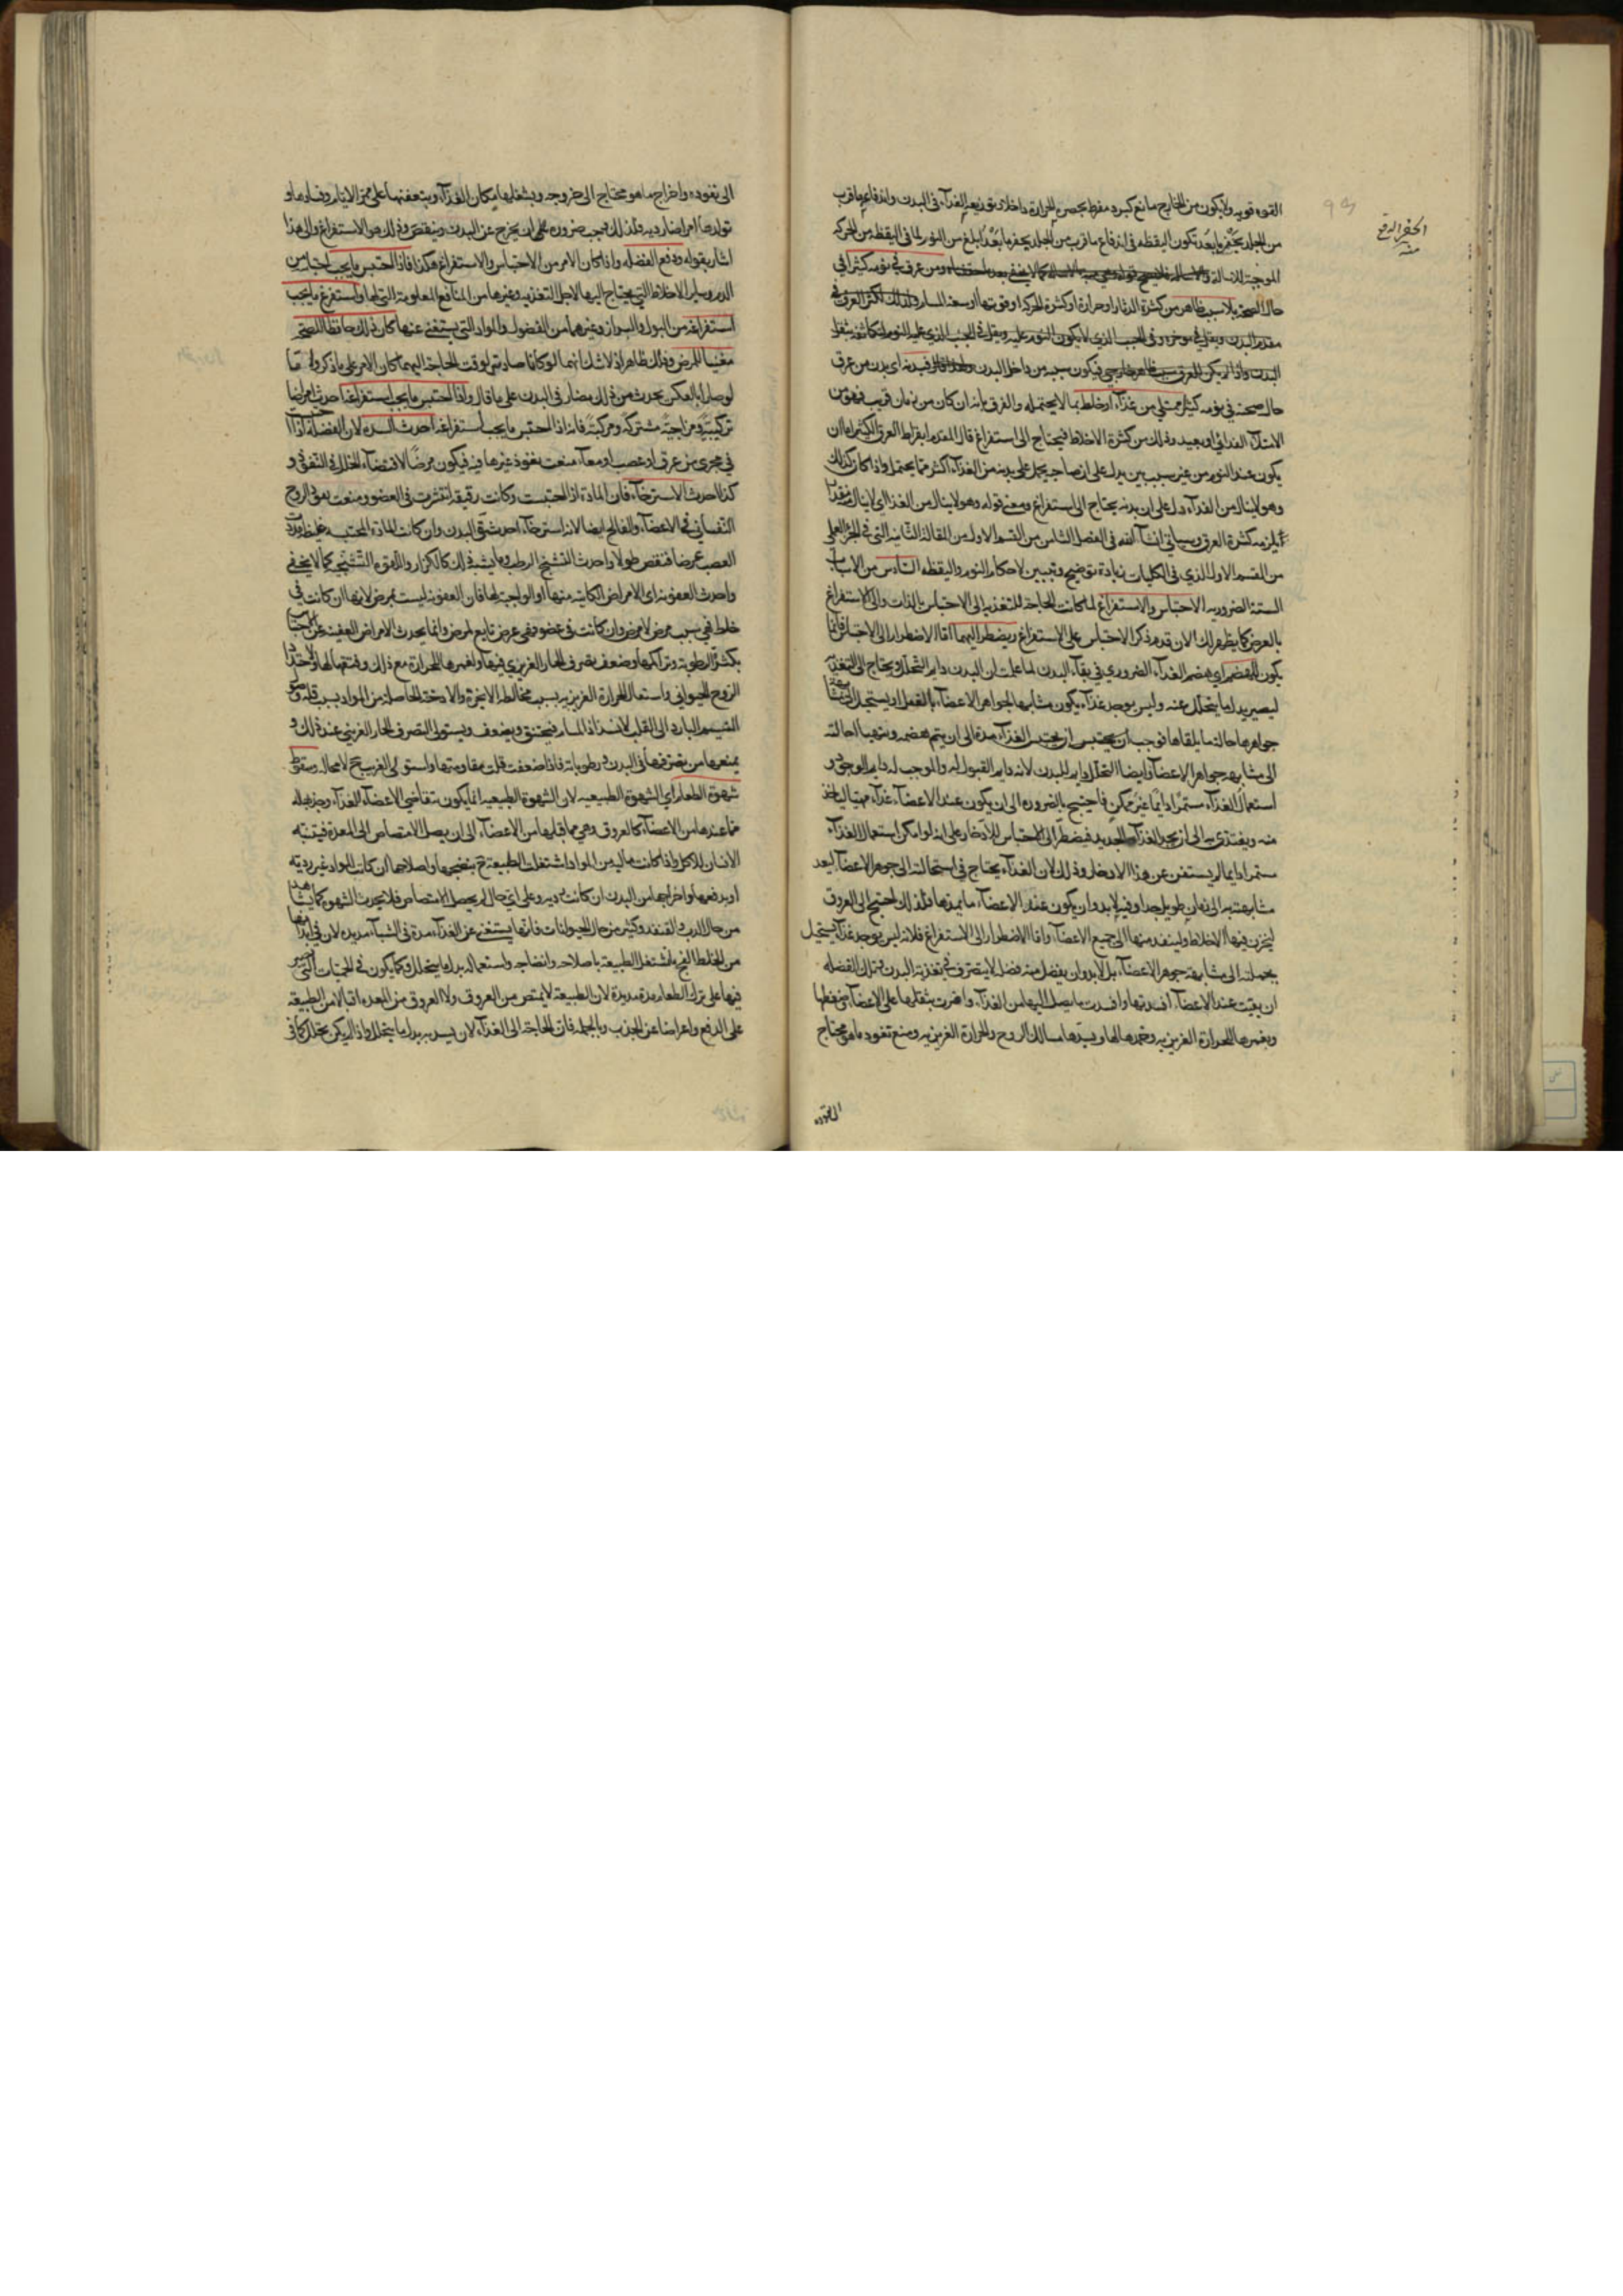 القوه قويه ولا يكون من الخارج مانع كبرد مفرط يحصر الحرارة داخلا وتوزيعه الغذآء فى البدن واندفاع ما قرب
من الجلد بحفز ما بعد تكون اليقظه فى اندفاع ما قرب من الجلد بحفز ما بعد ابلغ من النوم لما فى اليقظه من الحركه
الحفز الدفع منه
الموجبة لذلك ومن عرق فى نومه كثيرا فى
حال الصحة بلا سبب ظاهر من كثرة الدثار او حرارة او كثرة الحركه او قوتها او سعة المسام ولذلك يكثر العرق فى
مقدم البدن ويقل فى موخره وفى الجنب الذي لا يكون النوم عليه ويقل فى الجنب الذي عليه النوم لتكاثفه بثقل
البدن واذا لم يكن للعرق سبب خارجي فيكون سببه من داخل البدن فبدنه اى بدن من عرق
حال صحته في نومه كثيرا ممتلى من غذآء او خلط بما لا يحتمله والفرق بانه ان كان من زمان قريب فهو من
الامتلآء الغذائي او بعيد وذلك من كثرة الاخلاط فيحتاج الى استفراغ قال المقدم ابقراط العرق الكثير اما ان
يكون عند النوم من غير سبب بين يدل على ان صاحبه يحمل على بدنه من الغذآء اكثر مما يحتمل واذا كان كذلك
وهو لا ينال من الغذآء دل على ان بدنه يحتاج الى استفراغ ومعنى قوله وهو لا ينال من الغذا اى لا ينال منه قدرا
يلزمه كثرة العرق وسياتي ان شآء الله فى الفصل الثامن من القسم الاول من المقالة الثانيه التى فى الجزء العملى
من القسم الاول الذي فى الكليات زيادة توضيح وتبيين لاحكام النوم واليقظه السادس من الاسباب
الستة الضروريه الاحتباس والاستفراغ لما كانت الحاجة للتغذيه الى الاحتباس بالذات والى الاستفراغ
بالعرض كما يظهر لك الان قدم ذكر الاحتباس على الاستفراغ ويضطر اليهما اما الاضطرار الى الاحتباس فانما
يكون للهضم اي هضم الغذآء الضروري في بقآء البدن لما علمت ان البدن دايم التحلل ويحتاج الى التغذيه
ليصير بدل ما يتحلل عنه وليس يوجد غذآء يكون مشابها لجواهر الاعضآء بالفعل او يستحيل الى مشابهة
جواهرها حالة ما يلقاها فوجب ان يحتبس الغذآء مدة الى ان يتم هضمه ويتهيأ احالته
الى مشابهه جواهر الاعضآء وايضا التحلل دايم للبدن لانه دايم القبول له والموجب له دايم الوجود و
استعمال الغذآء مستمرا دايما غير ممكن فاحتيج بالضروره الى ان يكون عند الاعضآء غذآء مهيأ لياخذ
منه ويغتذى به الى ان يجد الغذآء الجديد فيضطر الى الاحتباس للادخار على انه لو امكن استعمال الغذآء
مستمرا دايما لم يستغن عن هذا الادخار وذلك لان الغذآء يحتاج في استحالته الى جوهر الاعضآء لبعد
مشابهته به الى زمان طويل جدا وفيه لا بد وان يكون عند الاعضآء ما يمدها فلذلك احتيج الى العروق
ليخزن فيها الاخلاط ولينفذ منها الى جميع الاعضآء واما الاضطرار الى الاستفراغ فلانه ليس يوجد غذآء يستحيل
بجملته الى مشابهة جوهر الاعضآء بل لا بد وان يفضل منه فضل لا يتصرف فى تغذية البدن وتلك الفضله
ان بقيت عند الاعضآء افسدتها وافسدت ما يصل اليها من الغذآء واضرت بثقلها على الاعضآء وضغطها
وبغمرها للحرارة الغريزيه وخمدها لها وبسدها مسالك الروح والحرارة الغريزيه ومنع نفوذ ما هو محتاج
الى نفوذه واخراج ما هو محتاج الى خروجه وبشغلها مكان الغذآء وبتعفنها على ممر الايام وفسادها و
تولدها امراضا رديه فلذلك وجب ضروره الى ان يخرج عن البدن وينتفض وذلك هو الاستفراغ والى هذا
اشار بقوله ودفع الفضله واذا كان الامر من الاحتباس والاستفراغ هكذا فاذا احتبس ما يجب احتباسه من
الدم وساير الاخلاط التي يحتاج اليها لاجل التغذيه وغيرها من المنافع المعلومة التى لها واستفرغ ما يجب
استفراغه من البول والبراز وغيرهما من الفضول والمواد التي يستغنى عنها كان ذلك حافظا للصحة
مغنيا للمرض وذلك ظاهر اذ لا شك انهما لو كانا صادقين لوقت الحاجة اليهما كان الامر على ما ذكر واما
لو صارا بالعكس يحدث من ذلك مضار فى البدن على ما قال واذا احتبس ما يجب استفراغه احدث امراضا
تركيبية ومزاجية مشتركة ومركبة فانه اذا احتبس ما يجب استفراغه احدث السدد لان الفضله اذا احتبست
في مجرى من عرق او عصب او معآء منعت نفوذ غيرها فيه فيكون مرضا لاقتضآء الخلل فى النفوذ و
كذا احدث الاسترخآء فان المادة اذا احتبست وكانت رقيقه انتشرت فى العضو ومنعت نفوذ الروح
النفسانى فى الاعضآء والفالج ايضا لانه استرخآء احد شقى البدن وان كانت المادة المحتبسه غليظه مددت
العصب عرضا فنقص طولا واحدث التشنج الرطب وما يشبه ذلك كالكزاز واللقوه التشنجي كما لا يخفى
واحدث العفونة اى الامراض الكاينه منها او الواجبة لها فان العفونة ليست بمرض لانها ان كانت في
خلط فهي سبب مرض لا مرض وان كانت فى عضو فهي عرض تابع لمرض وانما يحدث الامراض العفنية عن الاحتباس
بكثرة الرطوبة وتراكمها وضعف تصرف الحار الغريزي فيها ولغمرها للحرارة مع ذلك وخنقها لها ولاحتداد
الروح الحيوانى واستعمال الحرارة الغريزيه بسبب مخالطة الابخرة والادخنة الحاصلة من المواد بسبب قلة وصول
النسيم البارد الى القلب لانسداد المسام فيختنق ويضعف ويستولى التصرف الحار الغريب عند ذلك و
يمنعها من تصرفها فى البدن ورطوباته فاذا ضعفت قلت مقاومتها واستولى الغريب ح لا محاله وسقوط
شهوة الطعام اي الشهوة الطبيعيه لان الشهوة الطبيعيه انما يكون بتقاضى الاعضآء الغذآء وجذبها له
مما عندها من الاعضآء كالعروق وهي مما قبلها من الاعضآء الى ان يصل الامتصاص الى المعدة فيتنبه
الانسان للاكل واذا كانت مملوءه من المواد اشتغلت الطبيعة ح بنضجها واصلاحها ان كانت المواد غير رديه
او بدفعها واخراجها من البدن ان كانت رديه وعلى اي حال لم يحصل الامتصاص فلا يحدث الشهوه كما يشاهد
من حال الدب والقنفذ وكثير من حال الحيوانات فانها يستغنى عن الغذآء مدة فى الشتآء مديده لان في ابدانها
من الخلط الفج ما تشتغل الطبيعة باصلاحه وانضاجه واستعماله بدل ما يتحلل وكما يكون فى الحميات التى يصبر
فيها على ترك الطعام مدة مديدة لان الطبيعة لا يمتص من العروق ولا العروق من المعده اقبالا من الطبيعة
على الدفع واعراضا عن الجذب وبالجمله فان الحاجة الى الغذآء لان يسد به بدل ما يتحلل واذا لم يكن تحلل كما فى